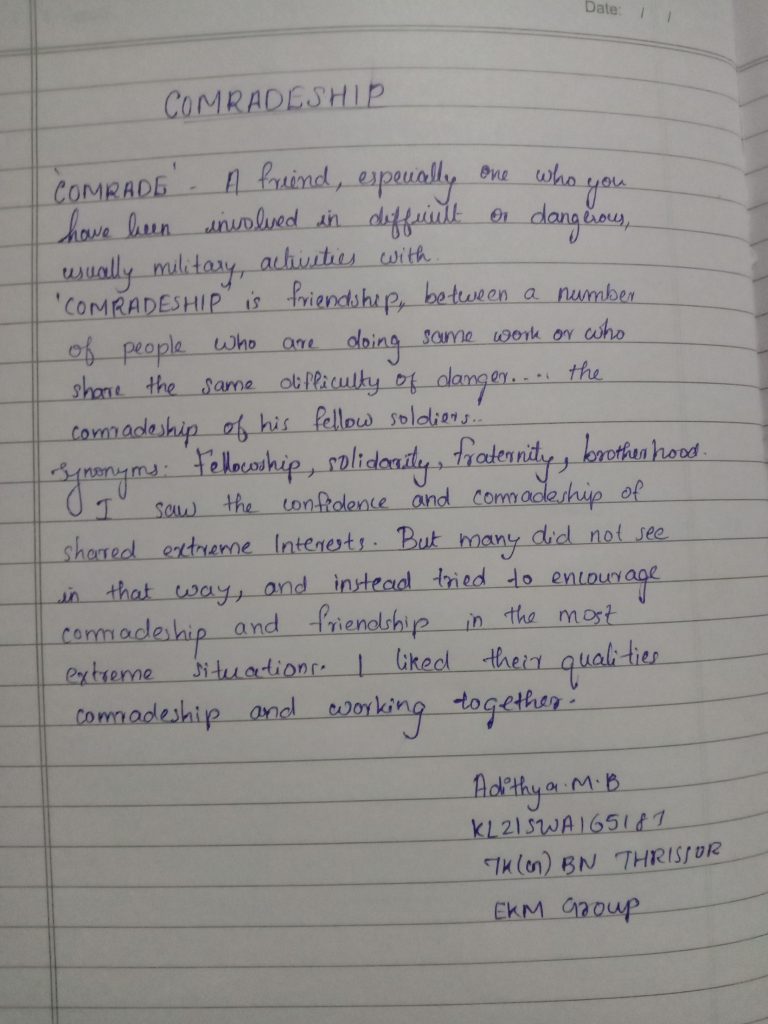 Date: / /
COMRADESHIP
'COMRADE' - A friend, especially one who you
have been involved in difficult or dangerous,
usually military, activities with.
'COMRADESHIP' is friendship, between a number
of people who are doing same work or who
share the same difficulty of danger.... the
comradeship of his fellow soldiers..
Synonyms: Fellowship, solidarity, fraternity, brotherhood.
I saw the confidence and comradeship of
shared extreme Interests. But many did not see
in that way, and instead tried to encourage
comradeship and friendship in the most
extreme situations. I liked their qualities
comradeship and working together.
Adithya.M.B
KL21SWA165187
7K(Gn) BN THRISSUR
EKM Group